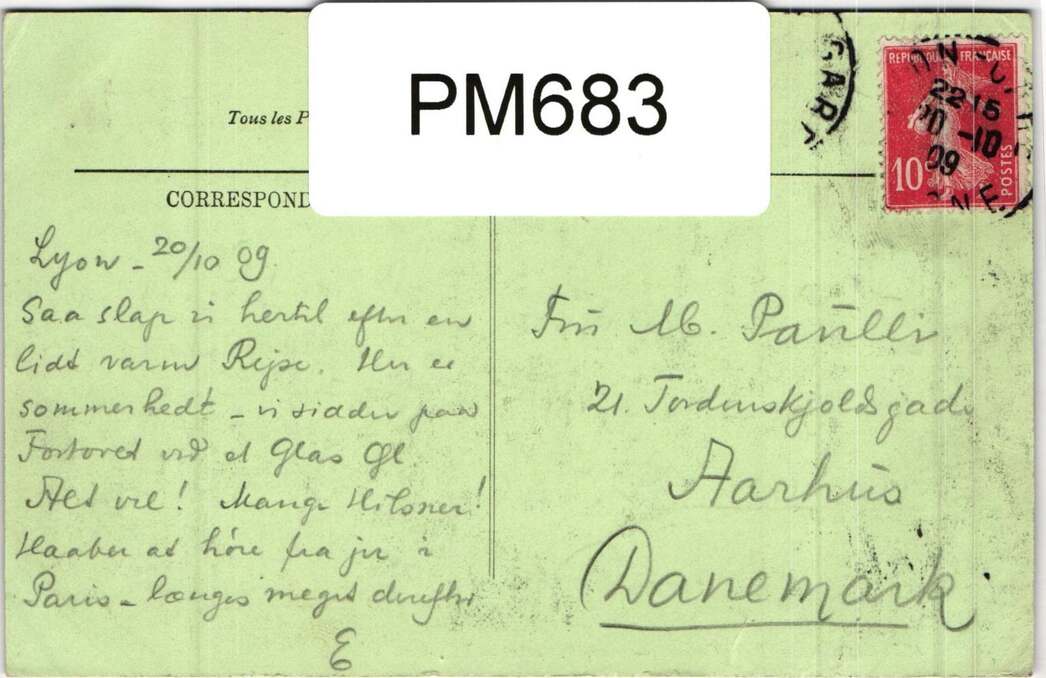 PM683
Tous les P
CORRESPOND
GARE
REPUBLIQUE FRANÇAISE
22 15
20 -10
09
10
POSTES
Lyon - 20/10 09.
Saa slap vi hertil efter en
lidt varm Rejse. Her er
sommerhedt - vi sidder paa
Fortovet ved et Glas Øl
Alt vel! Mange Hilsner!
Haaber at høre fra jer i
Paris - længes meget derefter
E
Fru M. Paulli
21. Tordenskjoldsgade
Aarhus
Danemark.